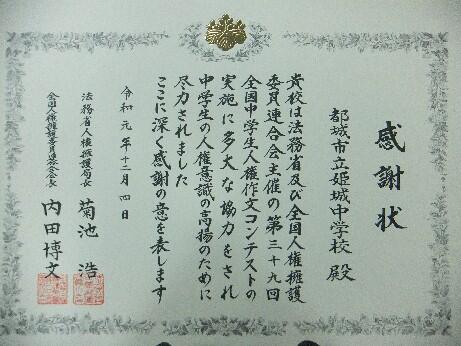 感謝状
都城市立姫城中学校 殿
貴校は法務省及び全国人権擁護
委員連合会主催の第三十九回
全国中学生人権作文コンテストの
実施に多大な協力をされ
中学生の人権意識の高揚のために
尽力されました
ここに深く感謝の意を表します
令和元年十二月四日
法務省人権擁護局長 菊池 浩
全国人権擁護委員連合会長 内田博文